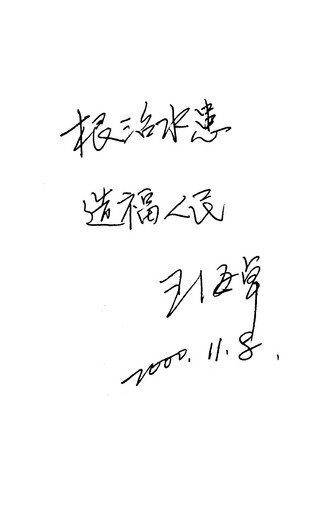 根治水患
造福人民
2000.11.8.